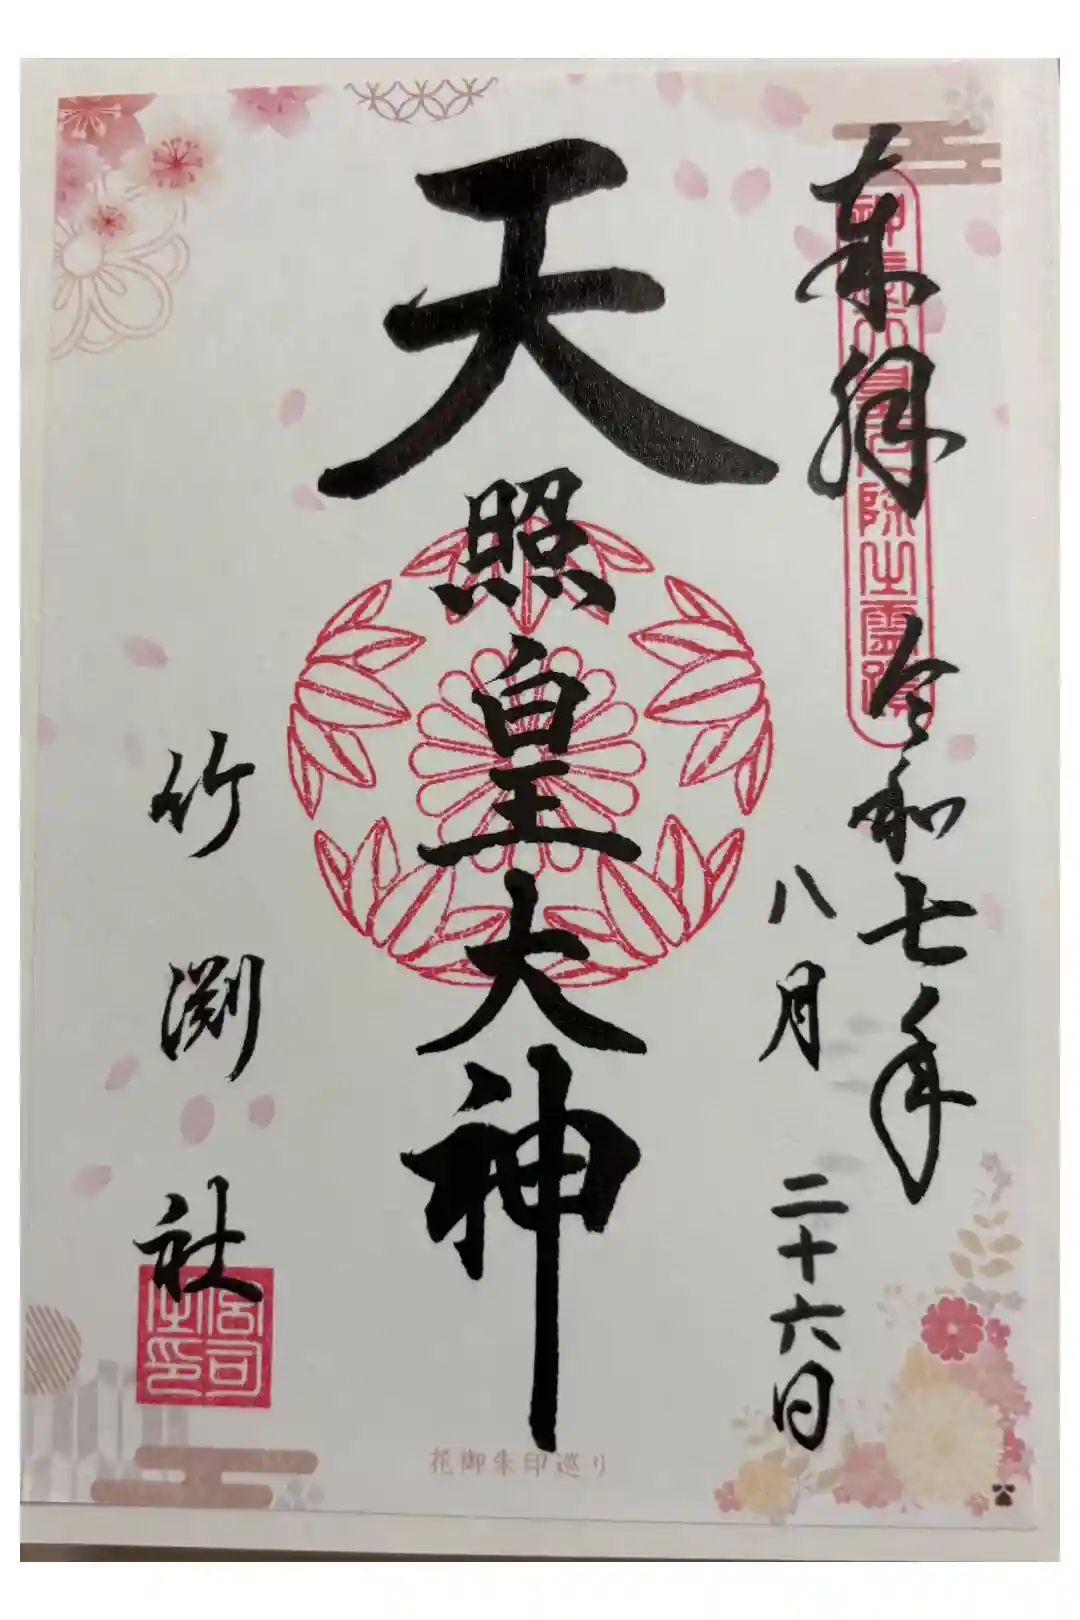 奉拝
令和七年
八月二十六日
天照皇大神
竹渕社
宮司之印
花御朱印巡り